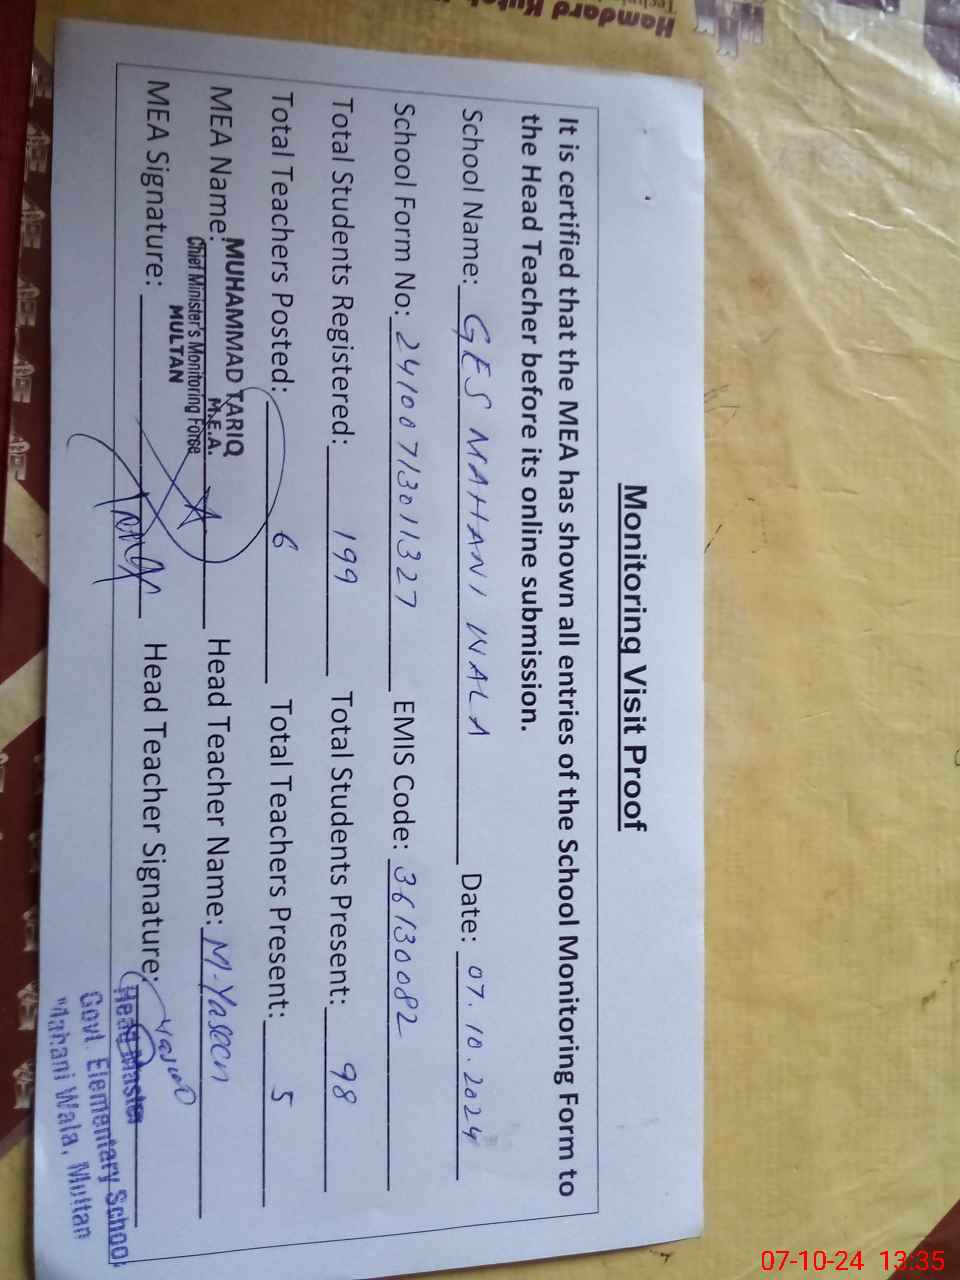 Monitoring Visit Proof
It is certified that the MEA has shown all entries of the School Monitoring Form to
the Head Teacher before its online submission.
School Name: GES MAHANI WALA Date: 07.10.2024
School Form No: 24100713011327 EMIS Code: 36130082
Total Students Registered: 199 Total Students Present: 98
Total Teachers Posted: 6 Total Teachers Present: 5
MEA Name: MUHAMMAD TARIQ Head Teacher Name: M. Yaseen
M.E.A.
Chief Minister's Monitoring Force
MULTAN
MEA Signature: Head Teacher Signature:
Head Master
Govt. Elementary School
Mahani Wala, Multan
Hamdard
07-10-24 13:35